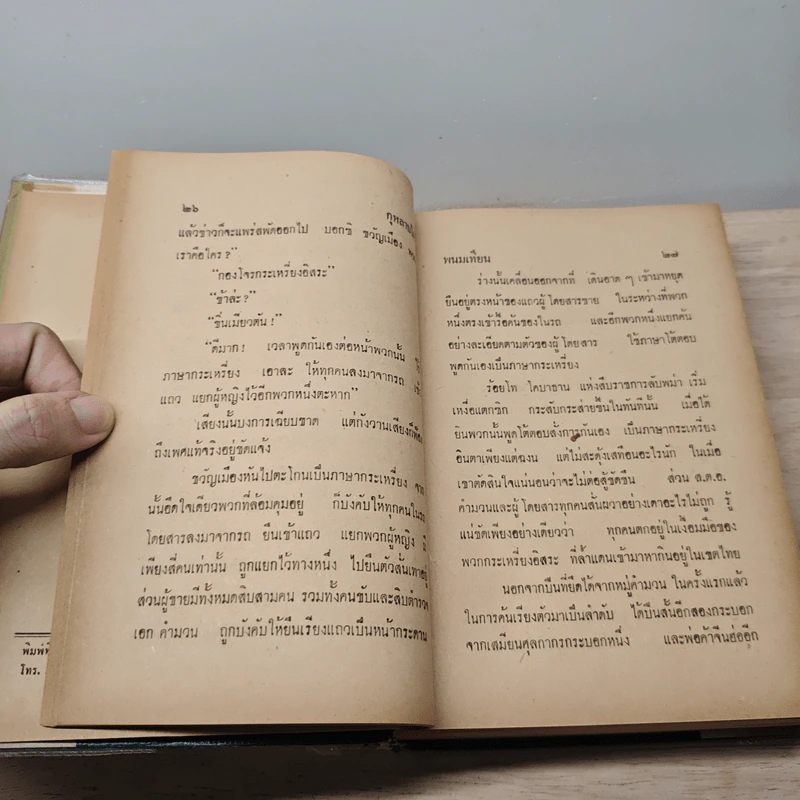 ๒๖
แล้วข่าวก็จะแพร่สพัดออกไป บอกซิ ขวัญเมือง
เราคือใคร?"
"กองโจรกระเหรี่ยงอิสระ"
"ข้าล่ะ?"
"ขิ่นเมียวตัน!"
"ดีมาก! เวลาพูดกันเองต่อหน้าพวกนั้น ใช้
ภาษากระเหรี่ยง เอาละ ให้ทุกคนลงมาจากรถ เข้า
แถว แยกผู้หญิงไว้อีกพวกหนึ่งตะหาก"
เสียงนั้นบงการเฉียบขาด แต่กังวานเสียง
ถึงเพศแท้จริงอยู่ชัดแจ้ง
ขวัญเมืองหันไปตะโกนเป็นภาษากระเหรี่ยง จาก
นั้นอึดใจเดียวพวกที่ล้อมคุมอยู่ ก็บังคับให้ทุกคนในรถ
โดยสารลงมาจากรถ ยืนเข้าแถว แยกพวกผู้หญิง มี
เพียงสี่คนเท่านั้น ถูกแยกไว้ทางหนึ่ง ไปยืนตัวสั่นเทาอยู่
ส่วนผู้ชายมีทั้งหมดสิบสามคน รวมทั้งคนขับและสิบตำรวจ
เอก คำมวน ถูกบังคับให้ยืนเรียงแถวเป็นหน้ากระดาน
พนมเทียน
๒๗
ร่างนั้นเคลื่อนออกจากที่ เดินอาด ๆ เข้ามาหยุด
ยืนอยู่ตรงหน้าของแถวผู้โดยสารชาย ในระหว่างที่พวก
หนึ่งตรงเข้ารื้อค้นของในรถ และอีกพวกหนึ่งแยกค้น
อย่างละเอียดตามตัวของผู้โดยสาร ใช้ภาษาโต้ตอบ
พูดกันเองเป็นภาษากระเหรี่ยง
ร้อยโท โคบาธาน แห่งสืบราชการลับพม่า เริ่ม
เหงื่อแตกซิก กระสับกระส่ายขึ้นในทันทีนั้น เมื่อได้
ยินพวกนั้นพูดโต้ตอบสั่งการกันเอง เป็นภาษากระเหรี่ยง
อินตาเพียงแต่ฉงน แต่ไม่สะดุ้งเสทือนอะไรนัก ในเมื่อ
เขาตัดสินใจแน่นอนว่าจะไม่ต่อสู้ขัดขืน ส่วน ส.ต.อ.
คำมวนและผู้โดยสารทุกคนสั่นผวาอย่างเดาอะไรไม่ถูก รู้
แน่ชัดเพียงอย่างเดียวว่า ทุกคนตกอยู่ในเงื้อมมือของ
พวกกระเหรี่ยงอิสระ ที่ล้ำแดนเข้ามาหากินอยู่ในเขตไทย
นอกจากปืนที่ยึดได้จากหมู่คำมวน ในครั้งแรกแล้ว
ในการค้นเรียงตัวมาเป็นลำดับ ได้ปืนสั้นอีกสองกระบอก
จากเสมียนศุลกากรกระบอกหนึ่ง และพ่อค้าจีนฮ่ออีก
โทร.